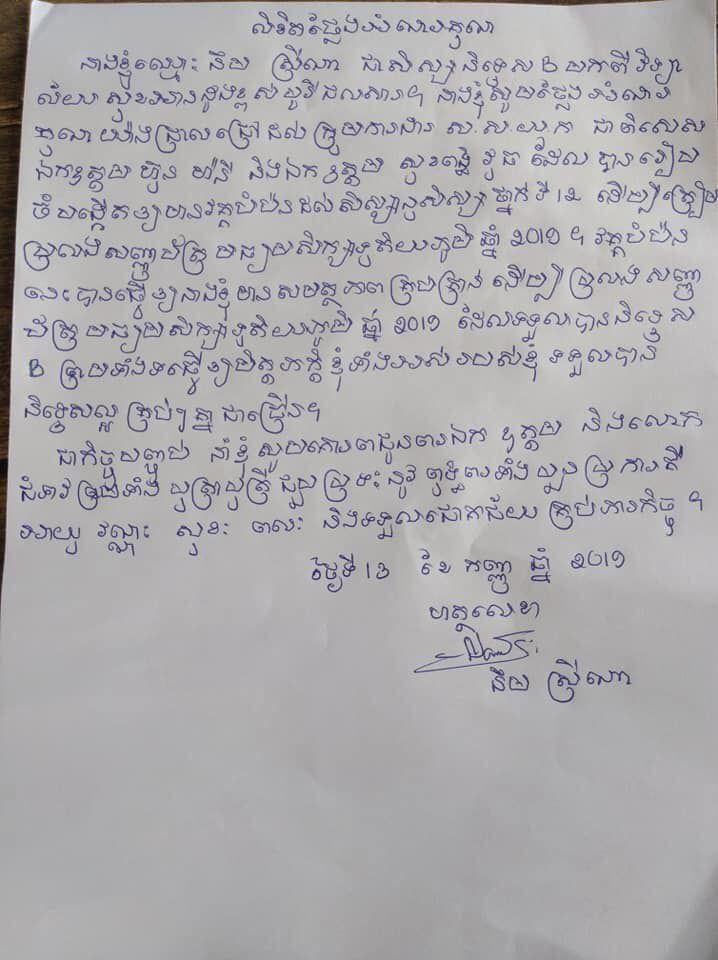 លិខិតថ្លែងអំណរគុណ
នាងខ្ញុំឈ្មោះ នឹម ស្រីណា ជាសិស្សនិទ្ទេស B មកពីវិទ្យា
ល័យ សុខអានដូងខ្ពស់បូវីជលសារ។ នាងខ្ញុំសូមថ្លែងអំណរ
គុណយ៉ាងជ្រាលជ្រៅដល់ ក្រុមការងារ ស.ស.យ.ក ជាពិសេស
ឯកឧត្តម ហ៊ុន ម៉ានី និងឯកឧត្តម សុខពុទ្ធិវុធ ដែលបានរៀប
ចំបង្កើតឲ្យមានវគ្គបំប៉នដល់សិស្សានុសិស្ស ថ្នាក់ទី 12 ដើម្បីត្រៀម
ប្រលងសញ្ញាប័ត្រមធ្យមសិក្សាទុតិយភូមិ ឆ្នាំ 2019 ។ វគ្គបំប៉ន
នេះបានធ្វើឲ្យនាងខ្ញុំមានសមត្ថភាពគ្រប់គ្រាន់ ដើម្បីប្រលងសញ្ញា
ប័ត្រមធ្យមសិក្សាទុតិយភូមិ ឆ្នាំ 2019 ដែលទទួលបាននិទ្ទេស
B ព្រមទាំងធ្វើឲ្យមិត្តភក្តិខ្ញុំទាំងអស់របស់ខ្ញុំ ទទួលបាន
និទ្ទេសល្អ គ្រប់ៗគ្នា ជាច្រើន។
ជាកិច្ចបញ្ចប់ នាំខ្ញុំសូមគោរពជូនពរឯកឧត្តម និងលោក
ជំទាវ ព្រមទាំងបុត្រាបុត្រី ជួបប្រទះនូវពុទ្ធពរទាំងបួនប្រការគឺ
អាយុ វណ្ណៈ សុខៈ ពលៈ និងទទួលជោគជ័យ គ្រប់ភារកិច្ច ។
ថ្ងៃទី 13 ខែ កញ្ញា ឆ្នាំ 2019
ហត្ថលេខា
នឹម ស្រីណា